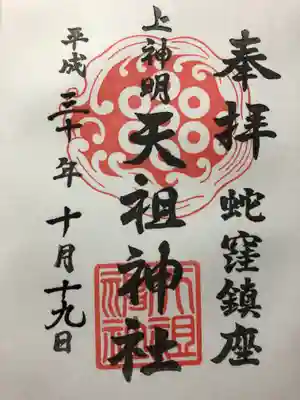 奉拝 蛇窪鎮座
上神明 天祖神社
平成三十年 十月十九日
天祖神社